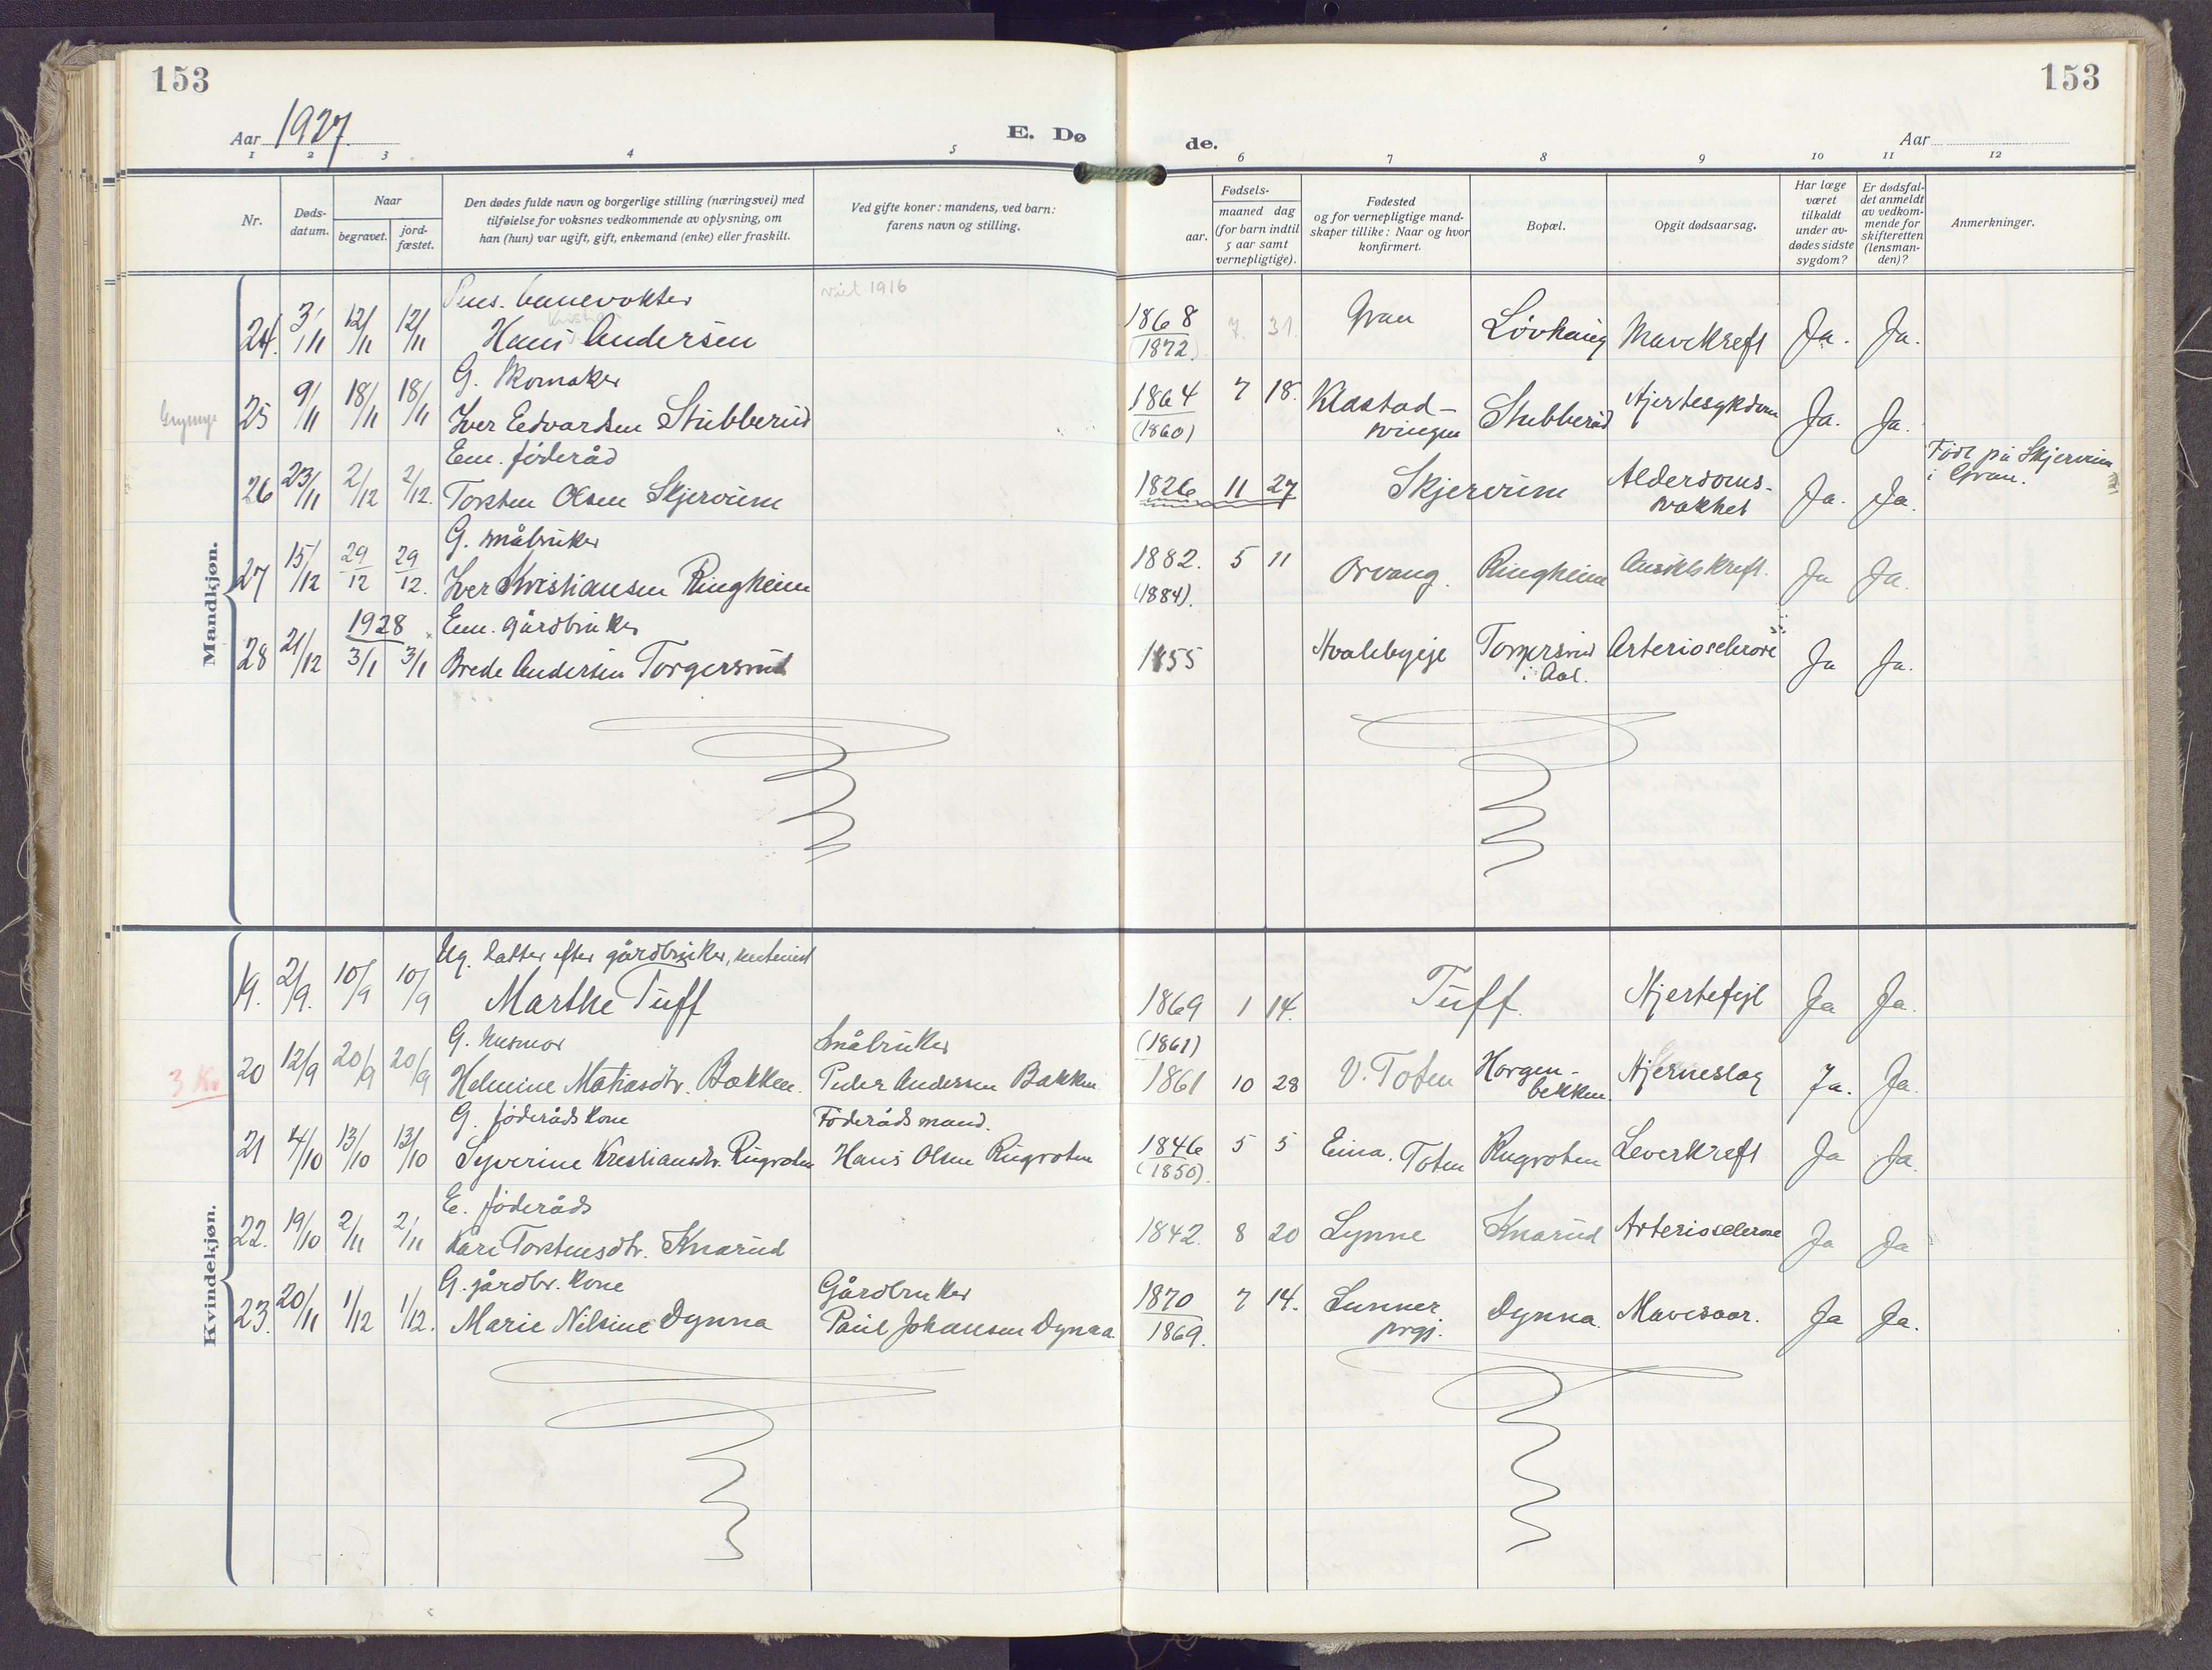 153
153
Aar 1927.
E. Dø
de.
Aar
1 2 3 4 5 6 7 8 9 10 11 12
Nr.
Døds-
datum.
Naar
begravet.
jord-
fæstet.
Den dødes fulde navn og borgerlige stilling (næringsvei) med
tilføielse for voksnes vedkommende av oplysning, om
han (hun) var ugift, gift, enkemand (enke) eller fraskilt.
Ved gifte koner: mandens, ved barn:
farens navn og stilling.
Fødsels-
aar.
maaned dag
(for barn indtil
5 aar samt
vernepligtige).
Fødested
og for vernepligtige mand-
skaper tillike: Naar og hvor
konfirmert.
Bopæl.
Opgit dødsaarsag.
Har læge
været
tilkaldt
under av-
dødes sidste
sygdom?
Er dødsfal-
det anmeldt
av vedkom-
mende for
skifteretten
(lensman-
den)?
Anmerkninger.
Mandkjøn.
Pens. banevokter viet 1916
Kristian
24. 3/11 12/11 12/11 Hans Andersen 1868 7. 31. Gran Lövhaug Mavekreft Ja. Ja.
(1872)
G. Skomaker
25 9/11 18/11 18/11 Iver Edvardsen Stubberud 1864 7 18. Klæstad- Stubberud Hjertesykdom Ja. Ja.
(1860) svingen
Em. föderåd
26 23/11 2/12 2/12. Torsten Olsen Skjervum 1826 11 27 Skjervum Alderdoms-
svakhet Ja. Ja. Födt på Skjervum
i Gran.
G. småbruker
27 15/12 29/12 29/12. Iver Kristiansen Ringheim 1882. 5 11 Orvang. Ringheim Ansiktskreft. Ja Ja.
(1884).
1928 Em. gårdbruker
28 21/12 3/1 3/1 Brede Andersen Torgersrud 1855 Hvalebyeje Torgersrud Arteriosclerose Ja Ja.
i Aal.
Kvindekjøn.
Ug. datter efter gårdbruker,
19. 2/9. 10/9 10/9 Marthe Tuff 1869 1 14. Tuff. Hjertefejl Ja Ja.
G. husmor Småbruker (1861)
3 Kr 20 12/9 20/9 20/9 Helmine Matiasdtr. Bakken. Peder Andersen Bakken 1861 10 28 V. Toten Horgen-
bekken Hjerneslag Ja. Ja.
G. föderådskone Föderådsmand.
21 4/10 13/10 13/10 Syverine Kristiansdtr. Rugroten Hans Olsen Rugroten 1846 5 5 Eina. Toten Rugroten Leverkreft Ja Ja.
(1850).
E. föderåds
22. 19/10 2/11 2/11 Kari Torstensdtr. Knarud 1842. 8 20 Lynne Knarud Arteriosclerose Ja Ja
G. gårdbr. kone Gårdbruker
23. 20/11 1/12 1/12. Marie Nilsine Dynna Paul Johansen Dynna 1870 7 14. Lunner Dynna. Mavesaar. Ja Ja.
1869. prgj.